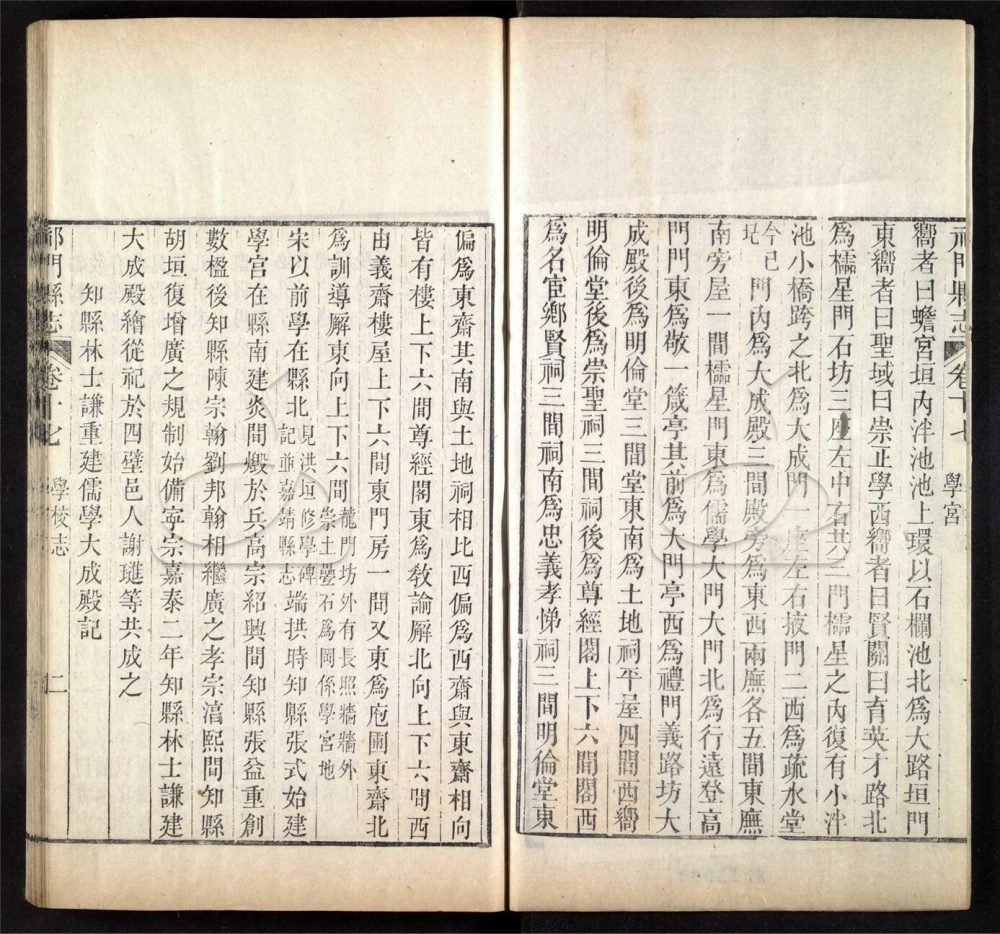 祁門縣志 卷十七 學宮
嚮者曰蟾宮垣內泮池池上環以石欄池北爲大路垣門
東嚮者曰聖域曰崇正學西嚮者曰賢關曰育英才路北
爲櫺星門石坊三座左中右共三門櫺星之內復有小泮
池小橋跨之北爲大成門一座左右掖門二西爲疏水堂
今圮 門內爲大成殿三間殿旁爲東西兩廡各五間東廡
南旁屋一間櫺星門東爲儒學大門大門北爲行遠登高
門門東爲敬一箴亭其前爲大門亭西爲禮門義路坊大
成殿後爲明倫堂三間堂東南爲土地祠平屋四間西嚮
明倫堂後爲崇聖祠三間祠後爲尊經閣上下六間閣西
爲名宦鄉賢祠三間祠南爲忠義孝悌祠三間明倫堂東
偏爲東齋其南與土地祠相比西偏爲西齋與東齋相向
皆有樓上下六間尊經閣東爲敎諭廨北向上下六間西
由義齋樓屋上下六間東門房一間又東爲庖圊東齋北
爲訓導廨東向上下六間龍門坊外有長照牆牆外崇土壘石爲岡係學宮地
宋以前學在縣北見洪垣修學碑記並嘉靖縣志端拱時知縣張式始建
學宮在縣南建炎間燬於兵高宗紹興間知縣張益重創
數楹後知縣陳宗翰劉邦翰相繼廣之孝宗淳熙間知縣
胡垣復增廣之規制始備寧宗嘉泰二年知縣林士謙建
大成殿繪從祀於四壁邑人謝璡等共成之
知縣林士謙重建儒學大成殿記
祁門縣志 卷十七 學校志 二